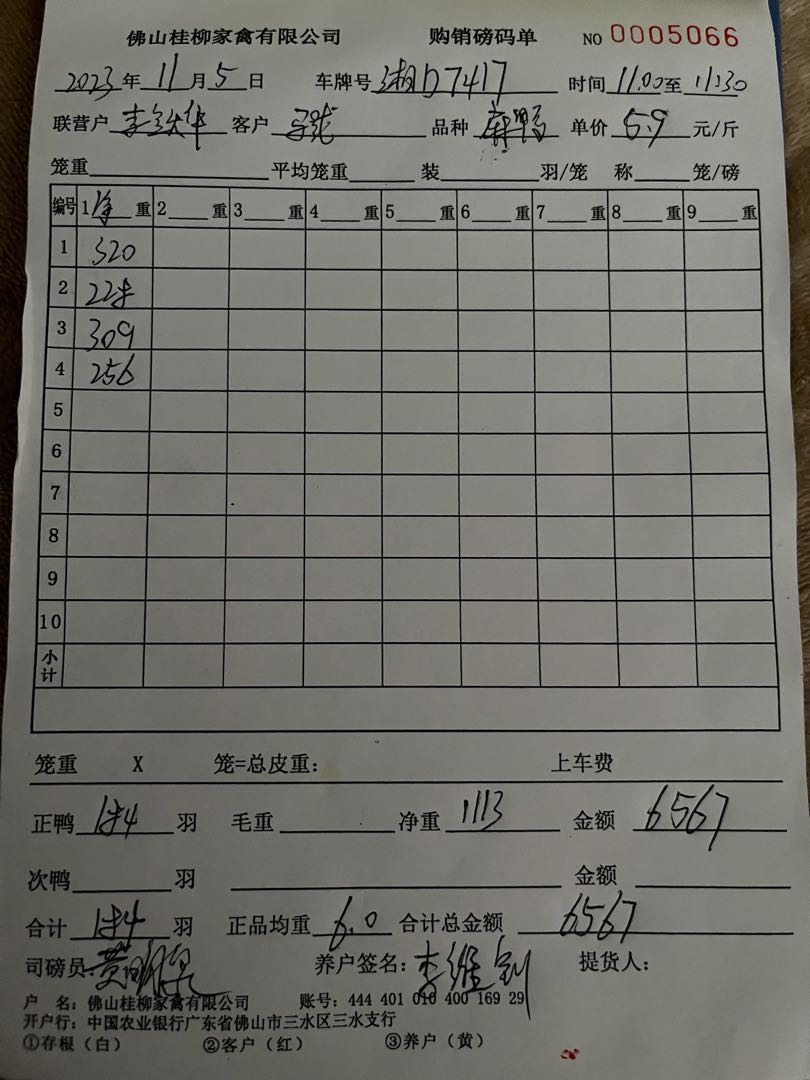 佛山桂柳家禽有限公司 购销磅码单 NO 0005066
2023年11月5日 车牌号湘D7417 时间11:00至11:30
联营户 客户 品种麻鸭 单价5.9元/斤
笼重 平均笼重 装 羽/笼 称 笼/磅
编号 1净重 2 重 3 重 4 重 5 重 6 重 7 重 8 重 9 重
1 320
2 228
3 309
4 256
5
6
7
8
9
10
小计
笼重 X 笼=总皮重: 上车费
正鸭184羽 毛重 净重1113 金额6567
次鸭 羽 金额
合计184羽 正品均重6.0 合计总金额6567
司磅员: 养户签名:李维钊 提货人:
户 名:佛山桂柳家禽有限公司 账号:444 401 010 400 169 29
开户行:中国农业银行广东省佛山市三水区三水支行
①存根(白) ②客户(红) ③养户(黄)